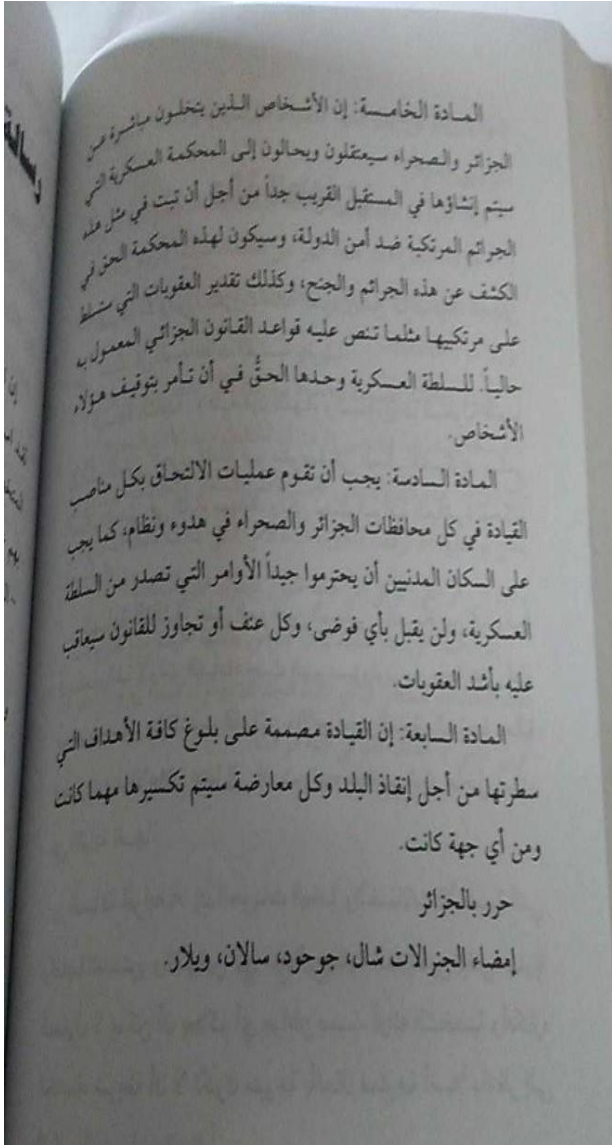 المادة الخامسة: إن الأشخاص الذين يتخلون مباشرة عن
الجزائر والصحراء سيعتقلون ويحالون إلى المحكمة العسكرية التي
سيتم إنشاؤها في المستقبل القريب جداً من أجل أن تبت في مثل هذه
الجرائم المرتكبة ضد أمن الدولة، وسيكون لهذه المحكمة الحق في
الكشف عن هذه الجرائم والجنح، وكذلك تقدير العقوبات التي ستسلط
على مرتكبيها مثلما تنص عليه قواعد القانون الجزائي المعمول به
حالياً. للسلطة العسكرية وحدها الحقُّ في أن تأمر بتوقيف هؤلاء
الأشخاص.
المادة السادسة: يجب أن تقوم عمليات الالتحاق بكل مناصب
القيادة في كل محافظات الجزائر والصحراء في هدوء ونظام، كما يجب
على السكان المدنيين أن يحترموا جيداً الأوامر التي تصدر من السلطة
العسكرية، ولن يقبل بأي فوضى، وكل عنف أو تجاوز للقانون سيعاقب
عليه بأشد العقوبات.
المادة السابعة: إن القيادة مصممة على بلوغ كافة الأهداف التي
سطرتها من أجل إنقاذ البلد وكل معارضة سيتم تكسيرها مهما كانت
ومن أي جهة كانت.
حرر بالجزائر
إمضاء الجنرالات شال، جوحود، سالان، ويلار.